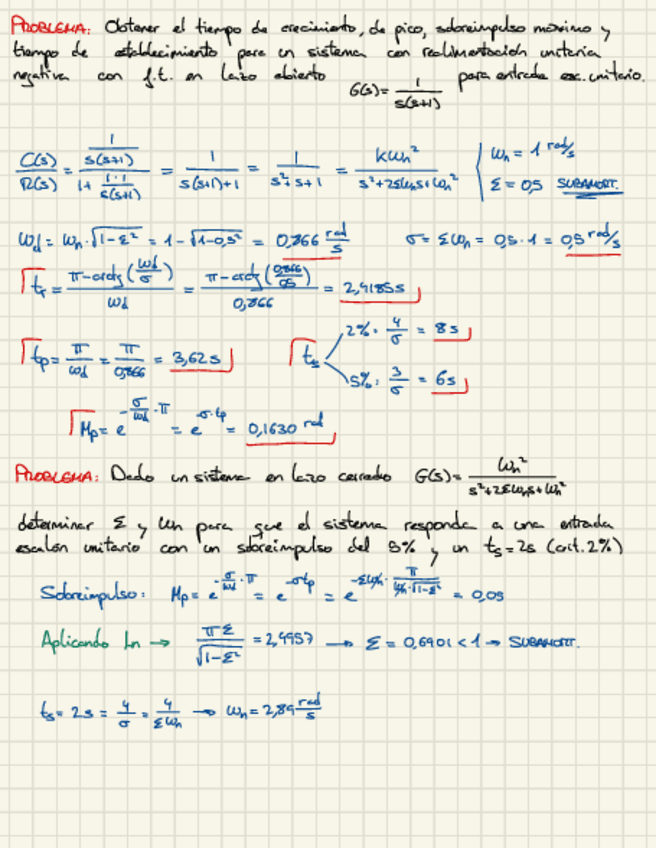 PROBLEMA: Obtener el tiempo de crecimiento, de pico, sobreimpulso máximo y
tiempo de establecimiento para un sistema con realimentación unitaria
negativa con f.t. en lazo abierto G(s)= 1/(s(s+1)) para entrada esc. unitario.
C(s)/R(s) = (1/(s(s+1)))/(1+(1·1)/(s(s+1))) = 1/(s(s+1)+1) = 1/(s²+s+1) = kωn²/(s²+2Σωns+ωn²) | ωn = 1 rad/s
Σ = 0,5 SUBAMORT.
ωd = ωn·√(1-Σ²) = 1-√(1-0,5²) = 0,866 rad/s σ = Σωn = 0,5·1 = 0,5 rad/s
tr = (π-arctg(ωd/σ))/ωd = (π-arctg(0,866/0,5))/0,866 = 2,4185s
tp = π/ωd = π/0,866 = 3,62s
ts 2%: 4/σ = 8s
5%: 3/σ = 6s
Mp = e^(-σ/ωd·π) = e^(-σ·tp) = 0,1630 rad
PROBLEMA: Dado un sistema en lazo cerrado G(s)= ωn²/(s²+2Σωns+ωn²)
determinar Σ y ωn para que el sistema responda a una entrada
escalón unitario con un sobreimpulso del 5% y un ts=2s (crit.2%)
Sobreimpulso: Mp = e^(-σ/ωd·π) = e^(-σtp) = e^(-Σωn·π/(ωn·√(1-Σ²))) = 0,05
Aplicando Ln → πΣ/√(1-Σ²) = 2,9957 → Σ = 0,6901 < 1 → SUBAMORT.
ts = 2s = 4/σ = 4/(Σωn) → ωn = 2,89 rad/s